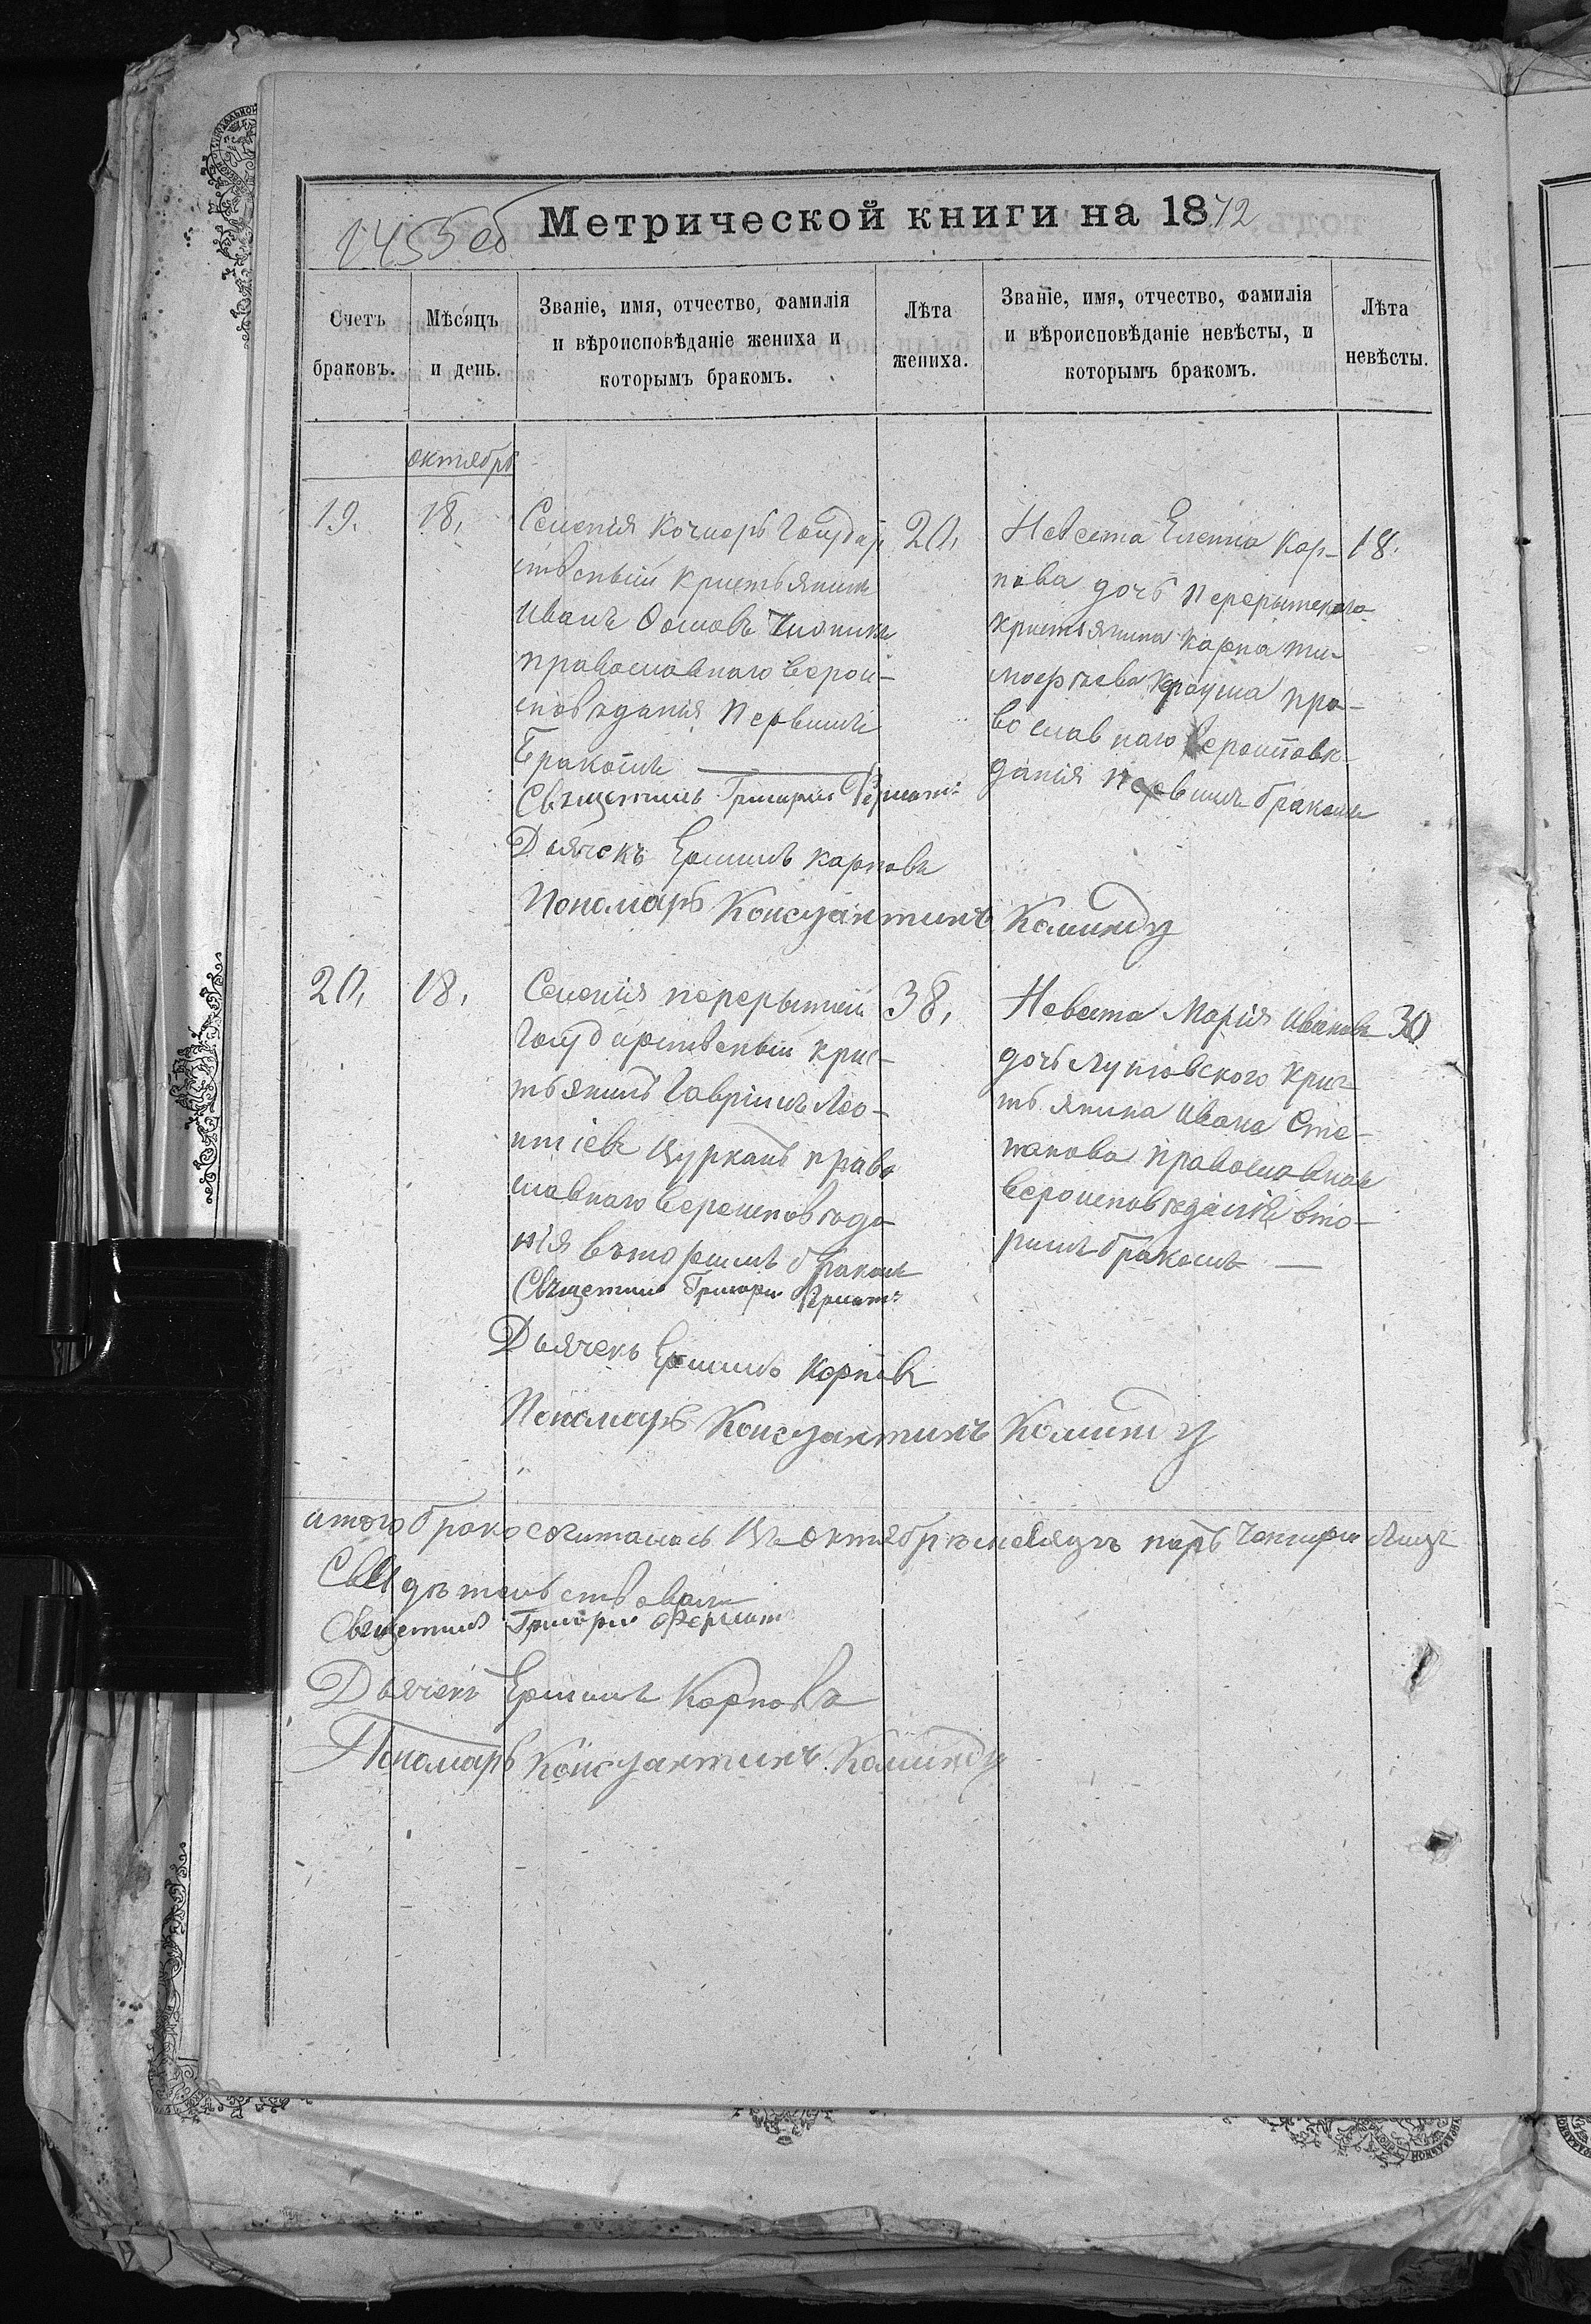 1455об Метрической книги на 1872
Счетъ браковъ.
Мѣсяцъ и день.
Званіе, имя, отчество, фамилія
и вѣроисповѣданіе жениха и
которымъ бракомъ.
Лѣта
жениха.
Званіе, имя, отчество, фамилія
и вѣроисповѣданіе невѣсты, и
которымъ бракомъ.
Лѣта
невѣсты.
октябрь
19.
18,
Селенія Кочиеръ Государ
ственый Кристьянинъ
Иванъ
православнаго верои-
споведанія Первимъ
Бракомъ
Свещеникъ Григорий
Дьячекъ Ермилъ Карповъ
Пономарь Константинъ
20,
Невеста Елена Кар-
пова дочь Перерытского
Кристьянина Карпа Ти-
мофѣева Крацма пра-
вославнаго вероиповѣ-
данія Первимъ бракомъ
18.
20,
18,
Селенія перерытой
Государственый крис-
тьянинъ Гавріилъ Лео-
нтіевъ Цурканъ право
славнаго вероисповѣда
нія въторимъ бракомъ
Свещеникъ Григори
Дьячекъ Ермилъ Карповъ
Пономарь Константинъ
38,
Невеста Марія Иванова
дочь Луповского Крис
тьянина Ивана Сте-
панова православнаго
вероисповѣданія вто-
римъ бракомъ
30
итого бракосочиталось въ октябрѣ месяцѣ паръ Чоттири лицъ
Свидѣтельствовали
Свещеникъ Григори
Дьячекъ Ермилъ Карповъ
Пономарь Константинъ